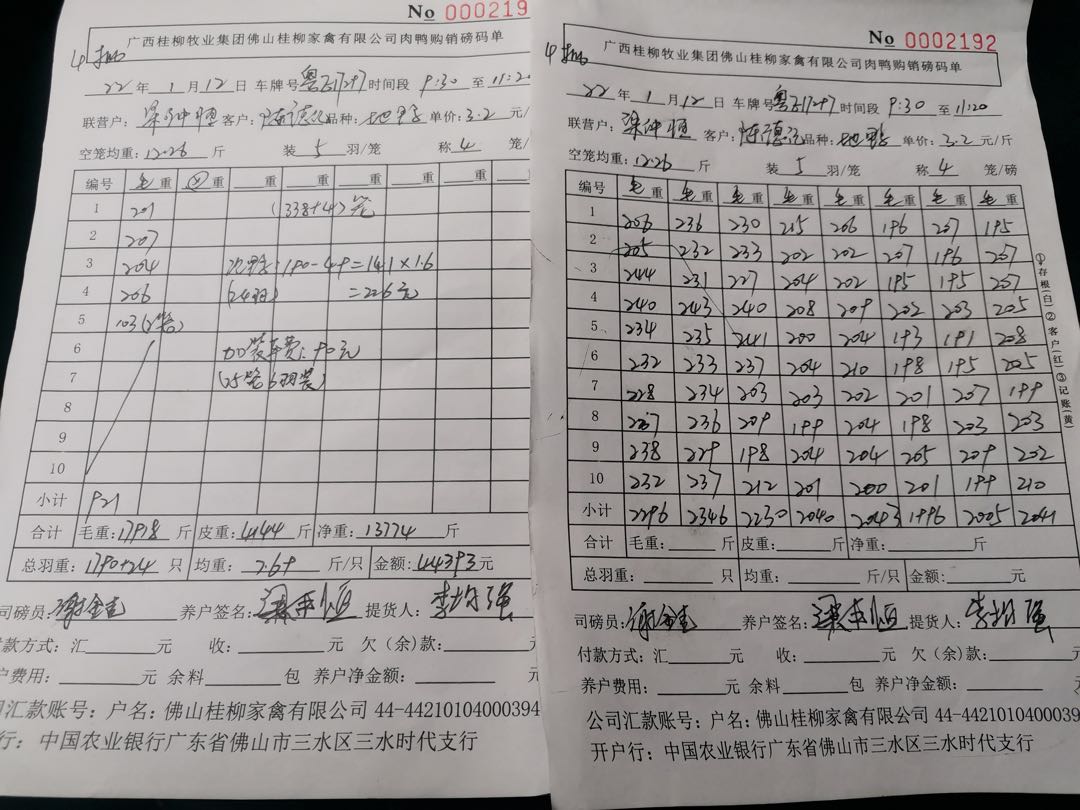 No 000219
广西桂柳牧业集团佛山桂柳家禽有限公司肉鸭购销磅码单
22年1月12日 车牌号 时间段 9:30 至 11:20
联营户: 客户: 品种: 单价:3.2元/
空笼均重:12.26斤 装5羽/笼 称4笼/
编号 毛重 重 重 重 重 重 重
1 201 (338+4)笼
2 207
3 204 :190-49=141×1.6
4 206 =226元
5 103
6 加装车费:90元
7
8
9
10
小计 921
合计 毛重:17918斤 皮重:4144斤 净重:13774斤
总羽重:1790+24只 均重:7.69斤/只 金额:44393元
司磅员: 养户签名: 提货人:
付款方式:汇 元 收: 元 欠(余)款:
养户费用: 元 余料 包 养户净金额:
司汇款账号:户名:佛山桂柳家禽有限公司 44-44210104000394
行:中国农业银行广东省佛山市三水区三水时代支行
No 0002192
广西桂柳牧业集团佛山桂柳家禽有限公司肉鸭购销磅码单
22年1月12日 车牌号 时间段 9:30 至 11:20
联营户: 客户: 品种: 单价:3.2元/斤
空笼均重:12.26斤 装5羽/笼 称4笼/磅
编号 毛重 毛重 毛重 毛重 毛重 毛重 毛重 毛重
1 206 236 230 215 206 196 207 195
2 205 232 233 202 202 207 196 207
3 244 231 227 204 202 195 195 207
4 240 243 240 208 209 202 203 205
5 234 235 241 200 204 193 191 208
6 232 233 237 204 210 198 195 205
7 228 234 203 203 202 201 207 199
8 237 236 209 199 204 198 203 203
9 238 229 198 204 204 205 209 202
10 232 237 212 201 200 201 199 210
小计 2296 2346 2230 2040 2043 1996 2005 2041
合计 毛重: 斤 皮重: 斤 净重: 斤
总羽重: 只 均重: 斤/只 金额: 元
司磅员: 养户签名: 提货人:
付款方式:汇 元 收: 元 欠(余)款:
养户费用: 元 余料 包 养户净金额:
公司汇款账号:户名:佛山桂柳家禽有限公司 44-4421010400039
开户行:中国农业银行广东省佛山市三水区三水时代支行
①存根(白)②客户(红)③记账(黄)